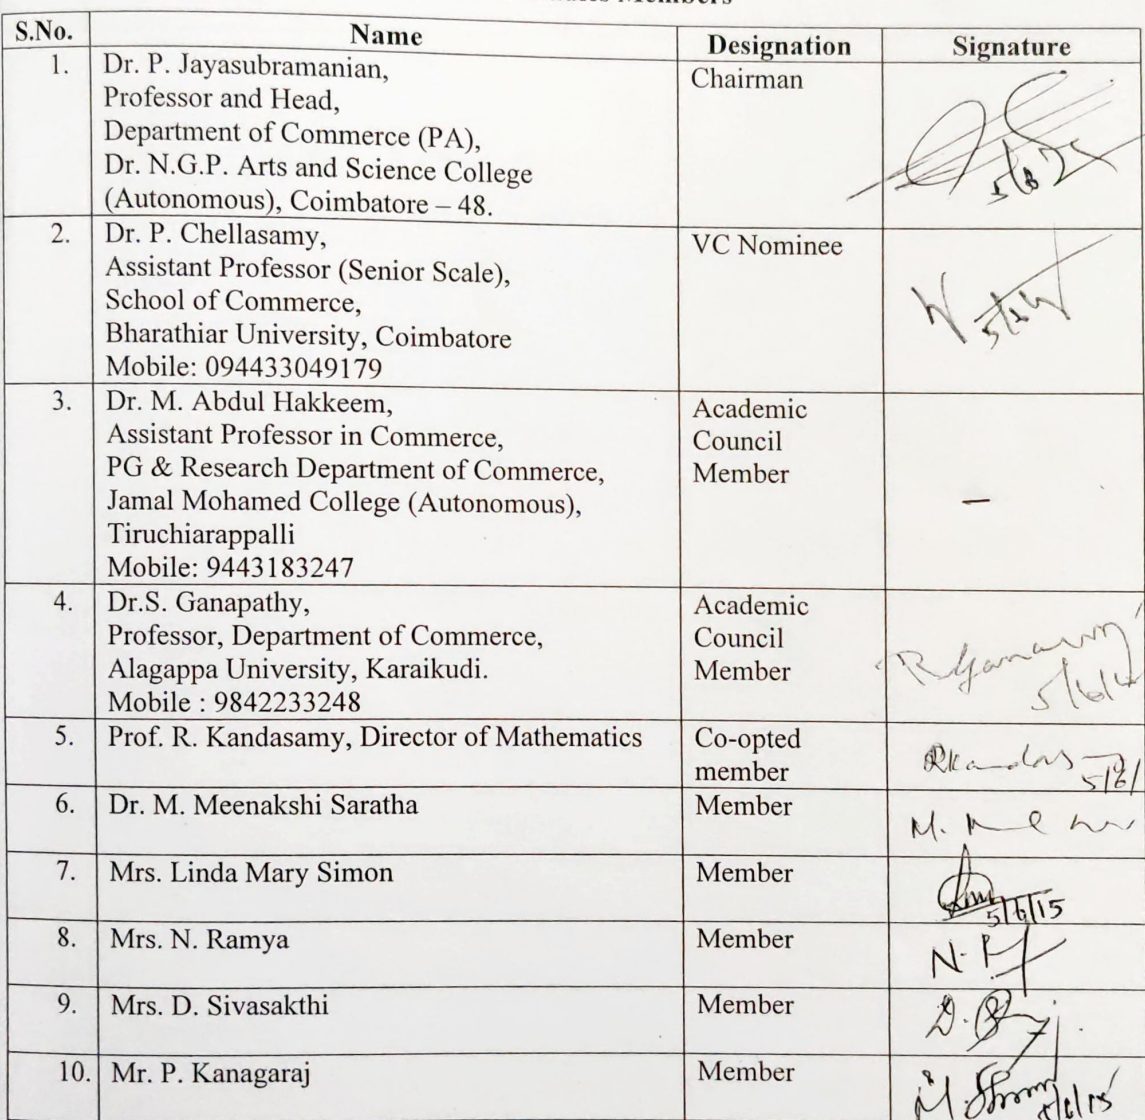 Members
S.No. Name Designation Signature
1. Dr. P. Jayasubramanian, Chairman
Professor and Head,
Department of Commerce (PA),
Dr. N.G.P. Arts and Science College
(Autonomous), Coimbatore – 48.
2. Dr. P. Chellasamy, VC Nominee
Assistant Professor (Senior Scale),
School of Commerce,
Bharathiar University, Coimbatore
Mobile: 094433049179
3. Dr. M. Abdul Hakkeem, Academic
Assistant Professor in Commerce, Council
PG & Research Department of Commerce, Member
Jamal Mohamed College (Autonomous), –
Tiruchiarappalli
Mobile: 9443183247
4. Dr.S. Ganapathy, Academic
Professor, Department of Commerce, Council
Alagappa University, Karaikudi. Member
Mobile : 9842233248
5. Prof. R. Kandasamy, Director of Mathematics Co-opted
member 5/6/
6. Dr. M. Meenakshi Saratha Member
7. Mrs. Linda Mary Simon Member
5/6/15
8. Mrs. N. Ramya Member
9. Mrs. D. Sivasakthi Member
10. Mr. P. Kanagaraj Member
5/6/15